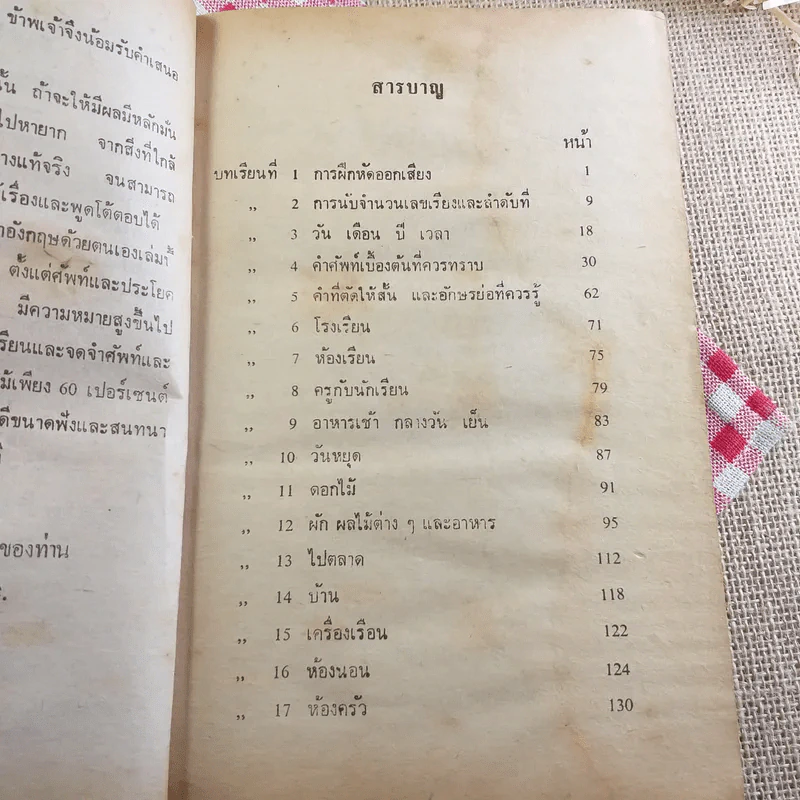 ข้าพเจ้าจึงน้อมรับคำเสนอ
ถ้าจะให้มีผลมีหลักมั่น
ไปหายาก จากสิ่งที่ใกล้
างแท้จริง จนสามารถ
เรื่องและพูดโต้ตอบได้
าอังกฤษด้วยตนเองเล่มนี้
ตั้งแต่ศัพท์และประโยค
มีความหมายสูงขึ้นไป
รียนและจดจำศัพท์และ
เพียง 60 เปอร์เซนต์
ดีขนาดฟังและสนทนา
ของท่าน
สารบาญ
หน้า
บทเรียนที่ 1 การฝึกหัดออกเสียง 1
,, 2 การนับจำนวนเลขเรียงและลำดับที่ 9
,, 3 วัน เดือน ปี เวลา 18
,, 4 คำศัพท์เบื้องต้นที่ควรทราบ 30
,, 5 คำที่ตัดให้สั้น และอักษรย่อที่ควรรู้ 62
,, 6 โรงเรียน 71
,, 7 ห้องเรียน 75
,, 8 ครูกับนักเรียน 79
,, 9 อาหารเช้า กลางวัน เย็น 83
,, 10 วันหยุด 87
,, 11 ดอกไม้ 91
,, 12 ผัก ผลไม้ต่าง ๆ และอาหาร 95
,, 13 ไปตลาด 112
,, 14 บ้าน 118
,, 15 เครื่องเรือน 122
,, 16 ห้องนอน 124
,, 17 ห้องครัว 130